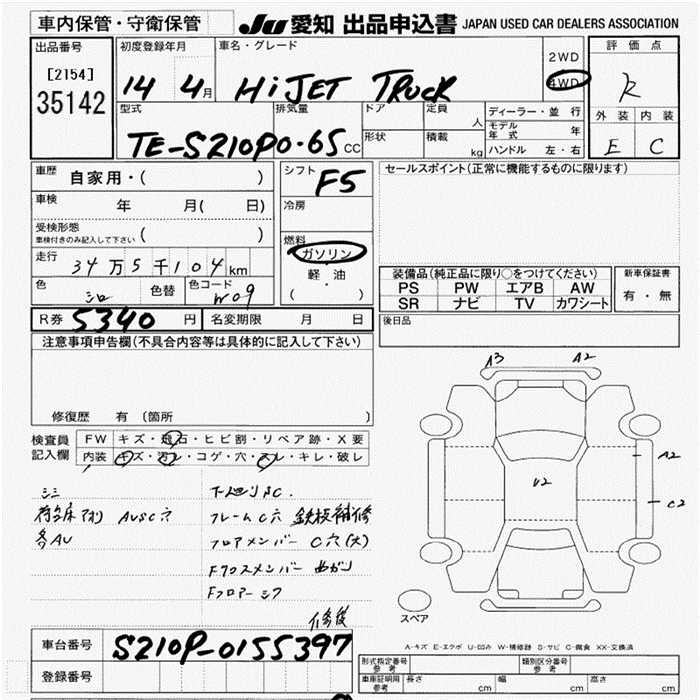 車内保管・守衛保管
JU 愛知 出品申込書 JAPAN USED CAR DEALERS ASSOCIATION
出品番号
[2154]
35142
初度登録年月
14 4月
車名・グレード
HiJET TRUCK
2WD
4WD
評価点
R
外装 内装
E C
型式
TE-S210P
排気量
0.65 CC
ドア
形状
定員
人
積載
kg
ディーラー・並行
モデル年式 年
ハンドル 左・右
車歴 自家用・( )
車検 年 月( 日)
受検形態
車検付きのみ記入して下さい ( )
走行 34万5千104km
色 シロ 色替 色コード W09
シフト F5
冷房
燃料
ガソリン
・
軽油
( )
セールスポイント(正常に機能するものに限ります)
装備品(純正品に限り○をつけてください)
PS PW エアB AW
SR ナビ TV カワシート
新車保証書
有・無
R券 5340円 名変期限 月 日
後日品
注意事項申告欄(不具合内容等は具体的に記入して下さい)
修復歴 有 〔箇所 〕
検査員記入欄
FW キズ・飛石・ヒビ割・リペア跡・X要
内装 キズ・汚レ・コゲ・穴・スレ・キレ・破レ
シミ
荷台床アオリ AUSC穴
各AU
下廻りSC.
フレームC穴 鉄板補修
フロアメンバー C穴(大)
Fクロスメンバー 曲がり
Fフロアーシワ
修復
A3 A2
U2
A2
C2
スペア
A-キズ E-エクボ U-凹ミ W-補修跡 S-サビ C-腐食 XX-交換済
車台番号 S210P-0155397
登録番号
形式指定番号
参考
類別区分番号
参考
車庫証明用
参考
長さ cm 幅 cm 高さ cm